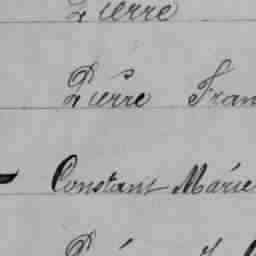 Pierre
Pierre Fran
Constant Marie